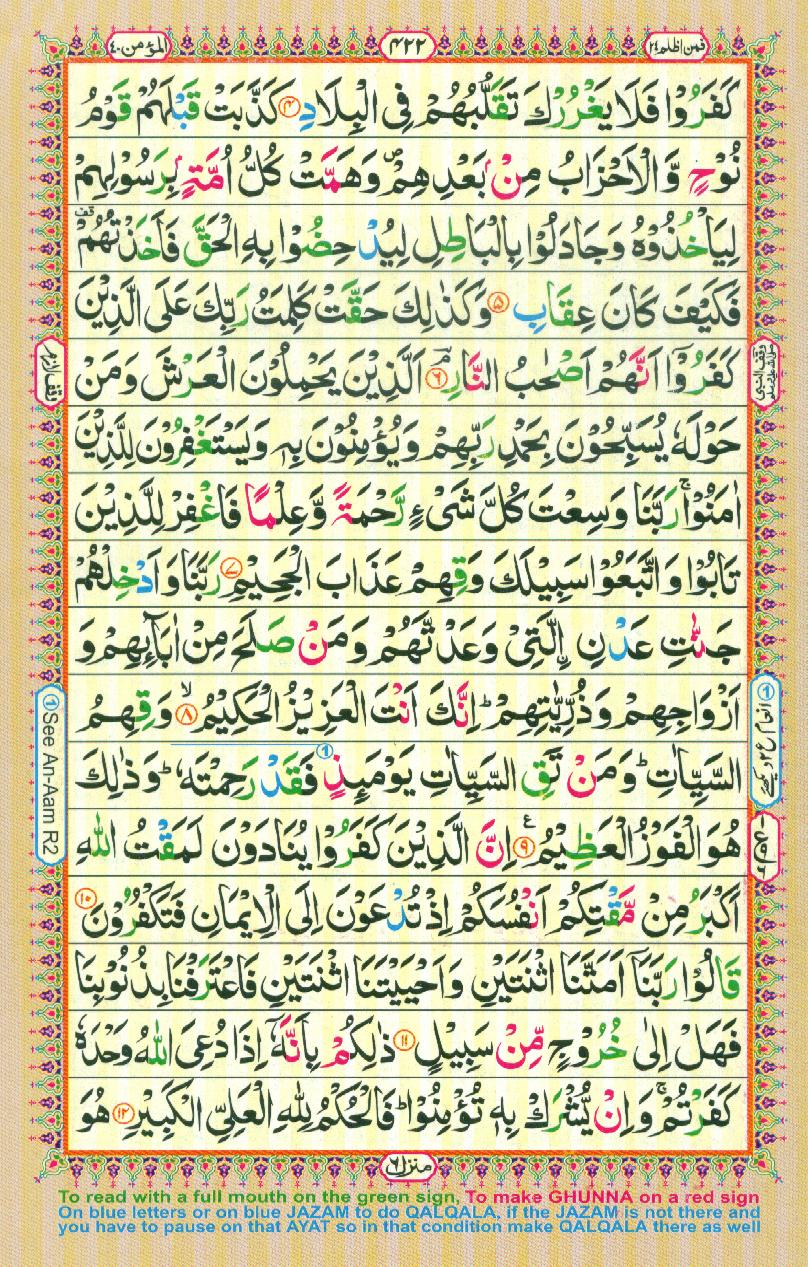 فمن اظلم ۲۴
۴۲۲
المؤمن ۴۰
كَفَرُوْا فَلَا يَغْرُرْكَ تَقَلُّبُهُمْ فِى الْبِلَادِ ۴ كَذَّبَتْ قَبْلَهُمْ قَوْمُ
نُوْحٍ وَّالْاَحْزَابُ مِنْۢ بَعْدِهِمْ ۪ وَهَمَّتْ كُلُّ اُمَّةٍۭ بِرَسُوْلِهِمْ
لِيَاْخُذُوْهُ وَجَادَلُوْا بِالْبَاطِلِ لِيُدْحِضُوْا بِهِ الْحَقَّ فَاَخَذْتُهُمْ قف
فَكَيْفَ كَانَ عِقَابِ ۵ وَكَذٰلِكَ حَقَّتْ كَلِمَتُ رَبِّكَ عَلَى الَّذِيْنَ
كَفَرُوْۤا اَنَّهُمْ اَصْحٰبُ النَّارِ ۶ اَلَّذِيْنَ يَحْمِلُوْنَ الْعَرْشَ وَمَنْ
حَوْلَهٗ يُسَبِّحُوْنَ بِحَمْدِ رَبِّهِمْ وَيُؤْمِنُوْنَ بِهٖ وَيَسْتَغْفِرُوْنَ لِلَّذِيْنَ
اٰمَنُوْا ۚ رَبَّنَا وَسِعْتَ كُلَّ شَىْءٍ رَّحْمَةً وَّعِلْمًا فَاغْفِرْ لِلَّذِيْنَ
تَابُوْا وَاتَّبَعُوْا سَبِيْلَكَ وَقِهِمْ عَذَابَ الْجَحِيْمِ ۷ رَبَّنَا وَاَدْخِلْهُمْ
جَنّٰتِ عَدْنِ اِۨلَّتِىْ وَعَدْتَّهُمْ وَمَنْ صَلَحَ مِنْ اٰبَآىِٕهِمْ وَ
اَزْوَاجِهِمْ وَذُرِّيّٰتِهِمْ ؕ اِنَّكَ اَنْتَ الْعَزِيْزُ الْحَكِيْمُ ۙ ۸ وَقِهِمُ
السَّيِّاٰتِ ؕ وَمَنْ تَقِ السَّيِّاٰتِ يَوْمَىِٕذٍ ① فَقَدْ رَحِمْتَهٗ ؕ وَذٰلِكَ
هُوَ الْفَوْزُ الْعَظِيْمُ ۹ ع اِنَّ الَّذِيْنَ كَفَرُوْا يُنَادَوْنَ لَمَقْتُ اللّٰهِ
اَكْبَرُ مِنْ مَّقْتِكُمْ اَنْفُسَكُمْ اِذْ تُدْعَوْنَ اِلَى الْاِيْمَانِ فَتَكْفُرُوْنَ ۱۰
قَالُوْا رَبَّنَاۤ اَمَتَّنَا اثْنَتَيْنِ وَاَحْيَيْتَنَا اثْنَتَيْنِ فَاعْتَرَفْنَا بِذُنُوْبِنَا
فَهَلْ اِلٰى خُرُوْجٍ مِّنْ سَبِيْلٍ ۱۱ ذٰلِكُمْ بِاَنَّهٗۤ اِذَا دُعِىَ اللّٰهُ وَحْدَهٗ
كَفَرْتُمْ ۚ وَاِنْ يُّشْرَكْ بِهٖ تُؤْمِنُوْا ؕ فَالْحُكْمُ لِلّٰهِ الْعَلِىِّ الْكَبِيْرِ ۱۲ هُوَ
وقف لازم
① See An-Aam R2
منزل ۶
To read with a full mouth on the green sign, To make GHUNNA on a red sign
On blue letters or on blue JAZAM to do QALQALA, if the JAZAM is not there and
you have to pause on that AYAT so in that condition make QALQALA there as well